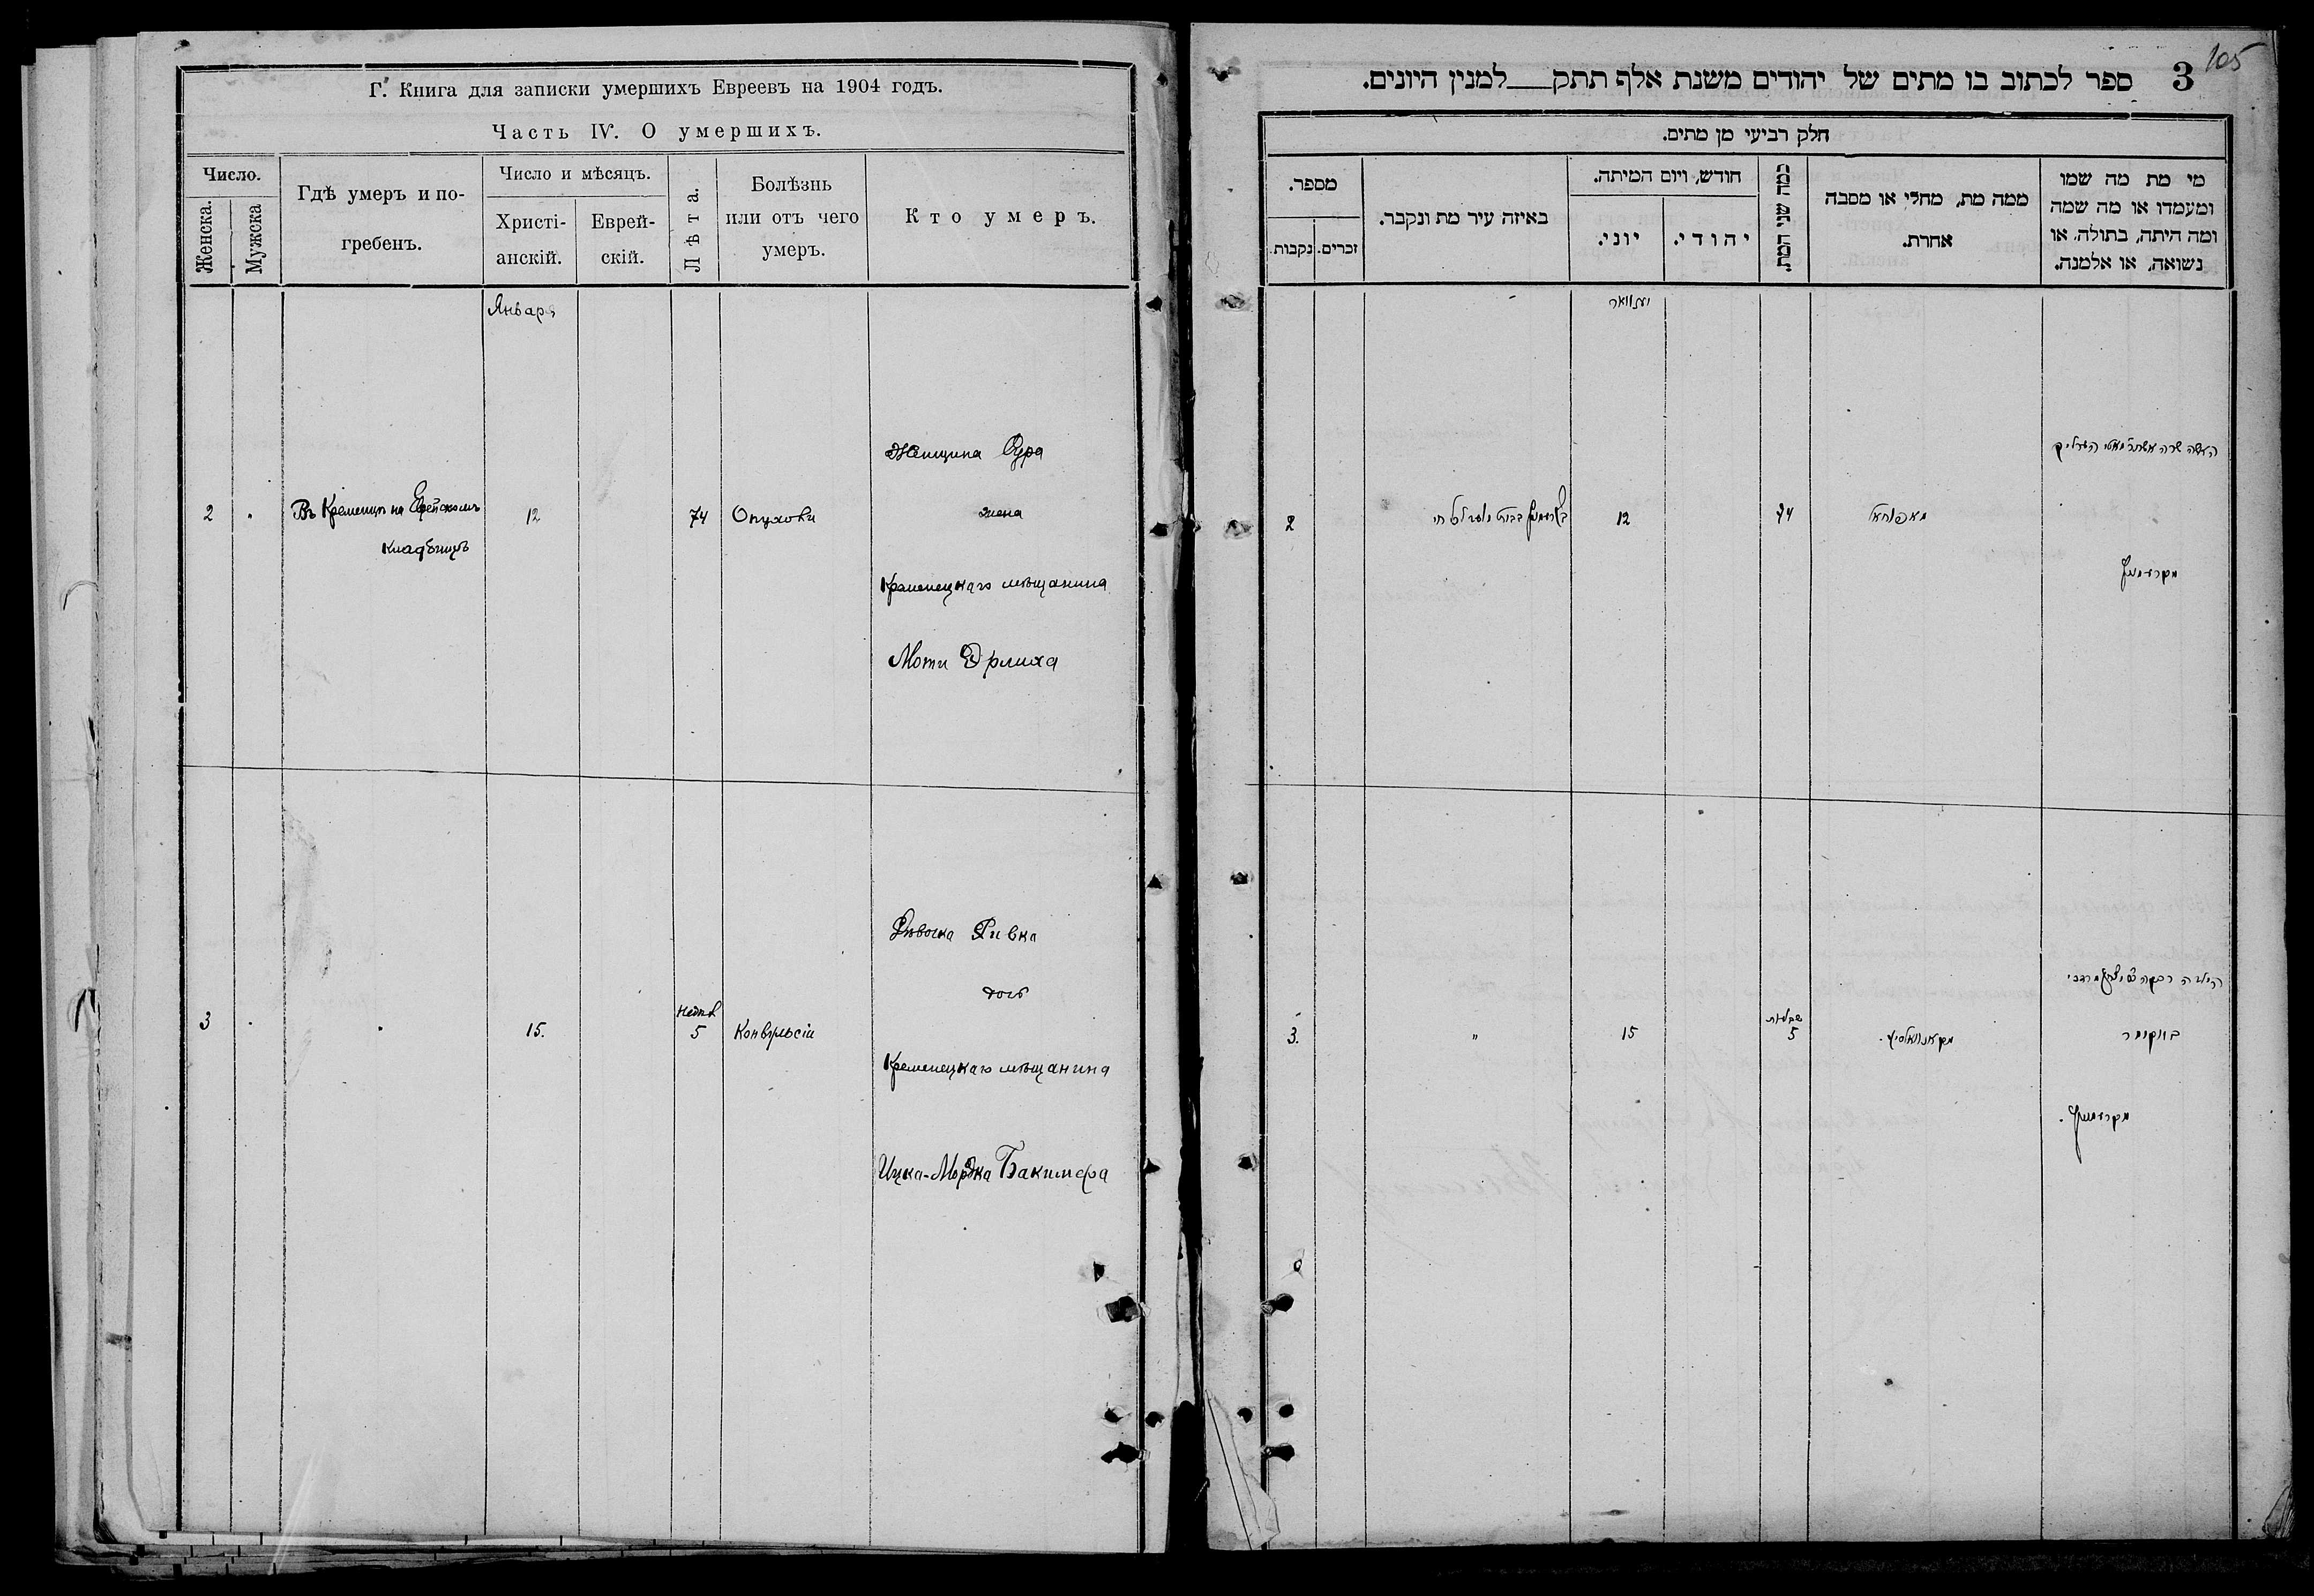 Г. Книга для записки умершихъ Евреевъ на 1904 годъ.
Часть IV. О умершихъ.
Число.
Женска.
Мужска
Гдѣ умеръ и по-
гребенъ.
Число и мѣсяцъ.
Христі-
анскій.
Еврей-
скій.
Лѣта.
Болѣзнь
или отъ чего
умеръ.
Кто умеръ.
Января
2
Въ Кременцѣ на Еврейскомъ
кладбищѣ
12
74
Опухоли
Женщина Сура
жена
Кременецкаго мѣщанина
Моти Эрлиха
3
15.
Недѣль
5
Конвульсіи
Дѣвочка Ривка
дочь
Кременецкаго мѣщанина
Ицка-Мордка Бакимера
105
3 ספר לכתוב בו מתים של יהודים משנת אלף תתק___למנין היונים.
חלק רביעי מן מתים.
מי מת מה שמו
ומעמדו או מה שמה
ומה היתה, בתולה, או
נשואה, או אלמנה.
ממה מת, מחלי או מסבה
אחרת.
כמה שני המת.
חודש, ויום המיתה.
יהודי.
יוני.
באיזה עיר מת ונקבר.
מספר.
זכרים.
נקבות.
יאנוואר
האשה שרה אשת מאטי
74
12
2
הילדה רבקה מרדכי
5
15
"
3.